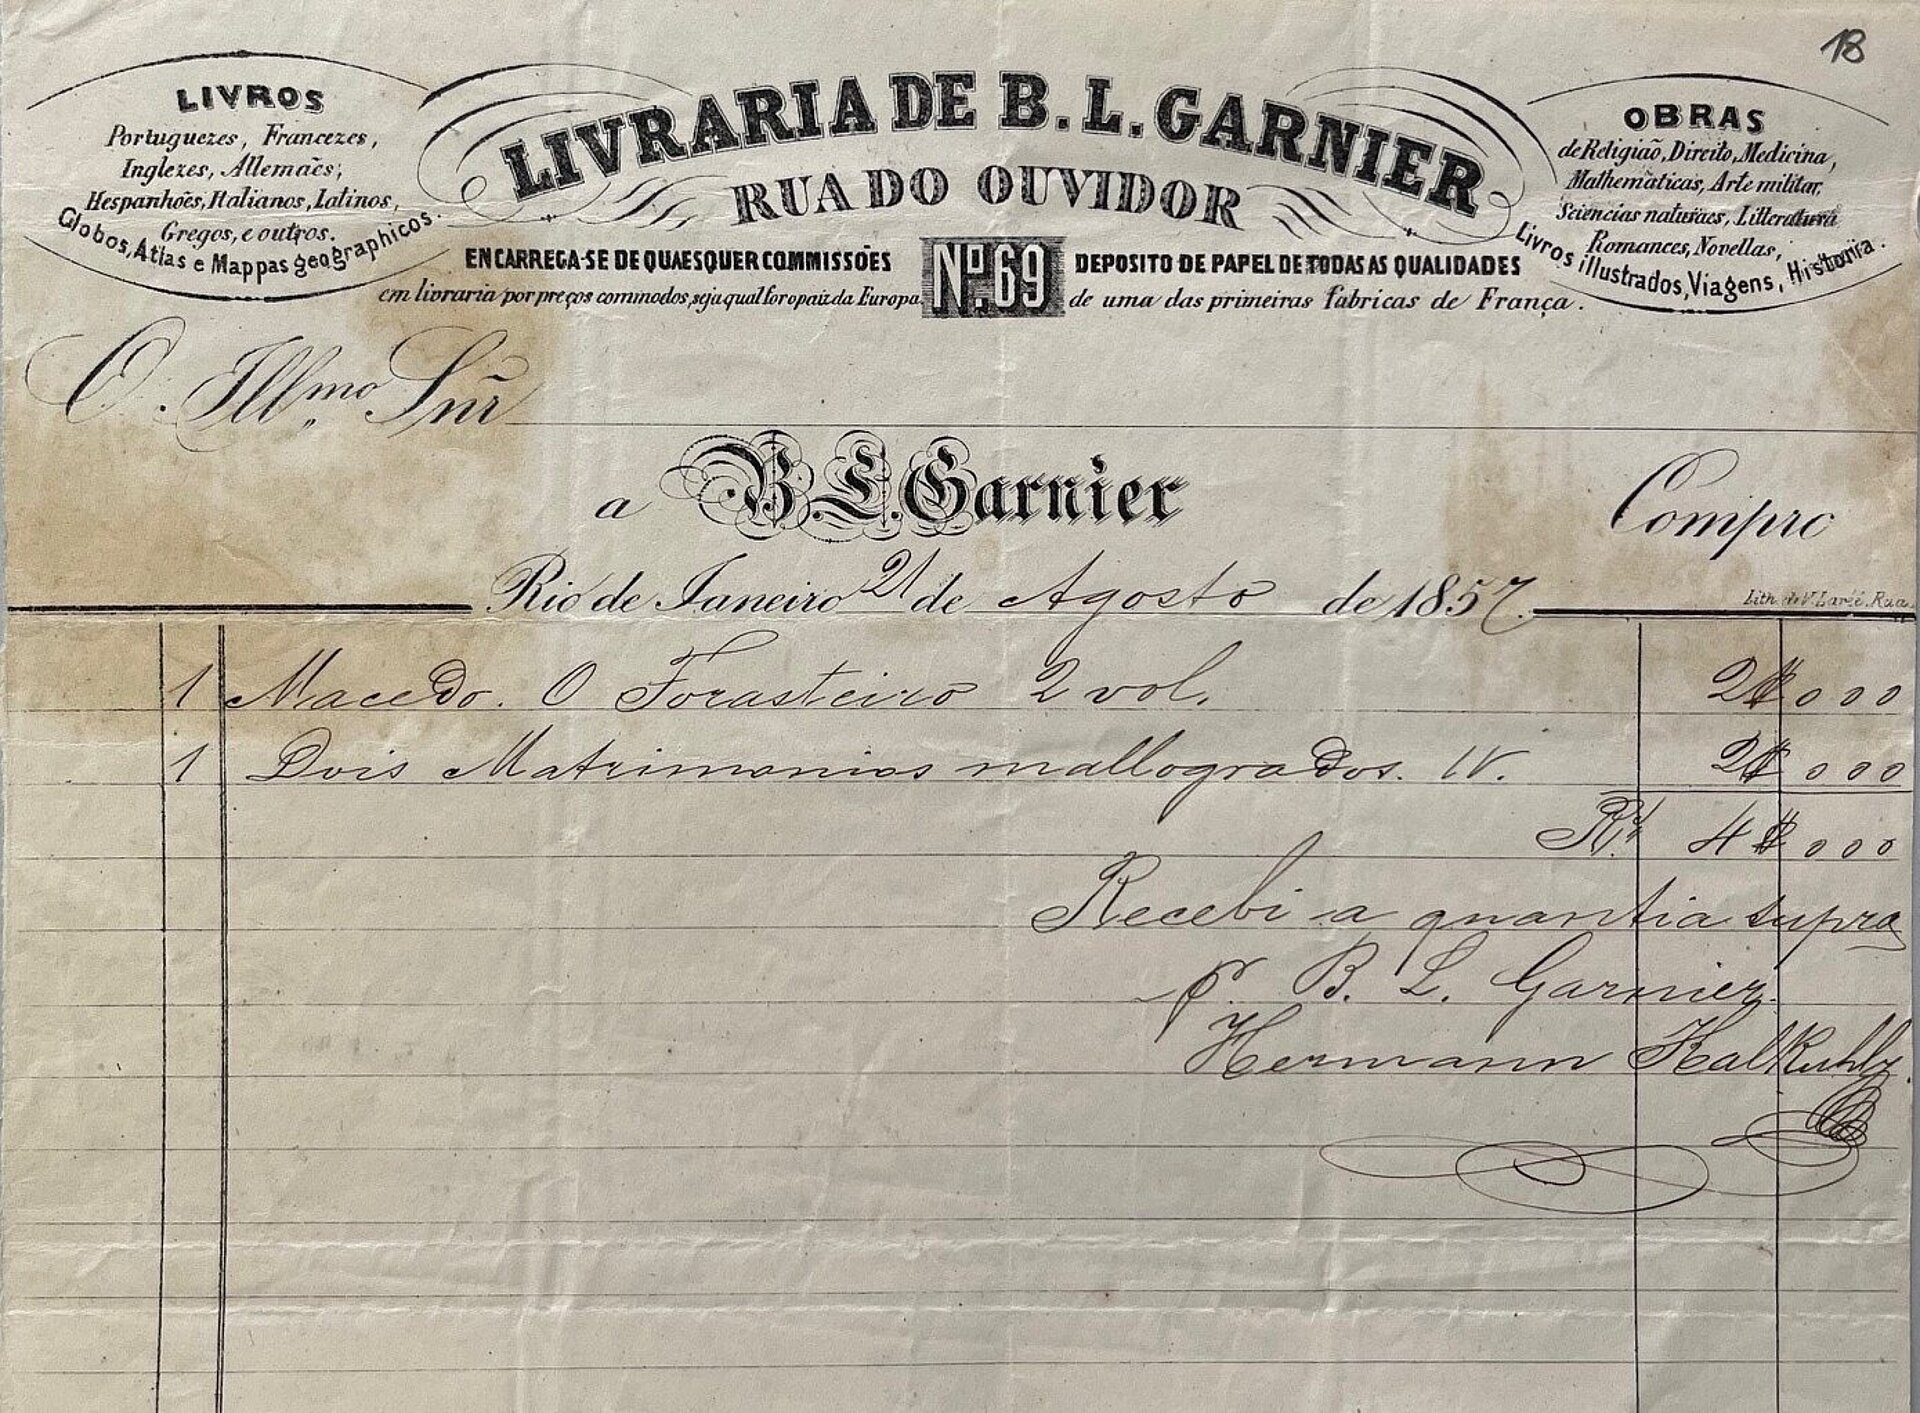 18
LIVROS
Portuguezes, Francezes,
Inglezes, Allemães,
Hespanhões, Italianos, Latinos,
Gregos, e outros.
Globos, Atlas e Mappas geographicos.
LIVRARIA DE B. L. GARNIER
RUA DO OUVIDOR
Nº 69
ENCARREGA-SE DE QUAESQUER COMMISSÕES
em livraria por preços commodos, seja qual for o paiz da Europa.
DEPOSITO DE PAPEL DE TODAS AS QUALIDADES
de uma das primeiras fabricas de França.
OBRAS
de Religião, Direito, Medicina,
Mathematicas, Arte militar,
Sciencias naturaes, Litteratura
Romances, Novellas,
Livros illustrados, Viagens, Historia.
O. Ill.mo Snr
a B. L. Garnier Compro
Rio de Janeiro 21 de Agosto de 1857.
Lith. de V. Larée, Rua
1 Macedo. O Forasteiro 2 vol. 2$000
1 Dois Matrimonios mallogrados. 1V. 2$000
Rs 4$000
Recebi a quantia supra
p. B. L. Garnier
Hermann Kalkuhl